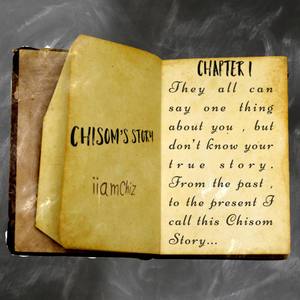 CHISOM'S STORY
iiamChiz
CHAPTER 1
They all can
say one thing
about you , but
don't know your
true story.
From the past ,
to the present I
call this Chisom
Story...